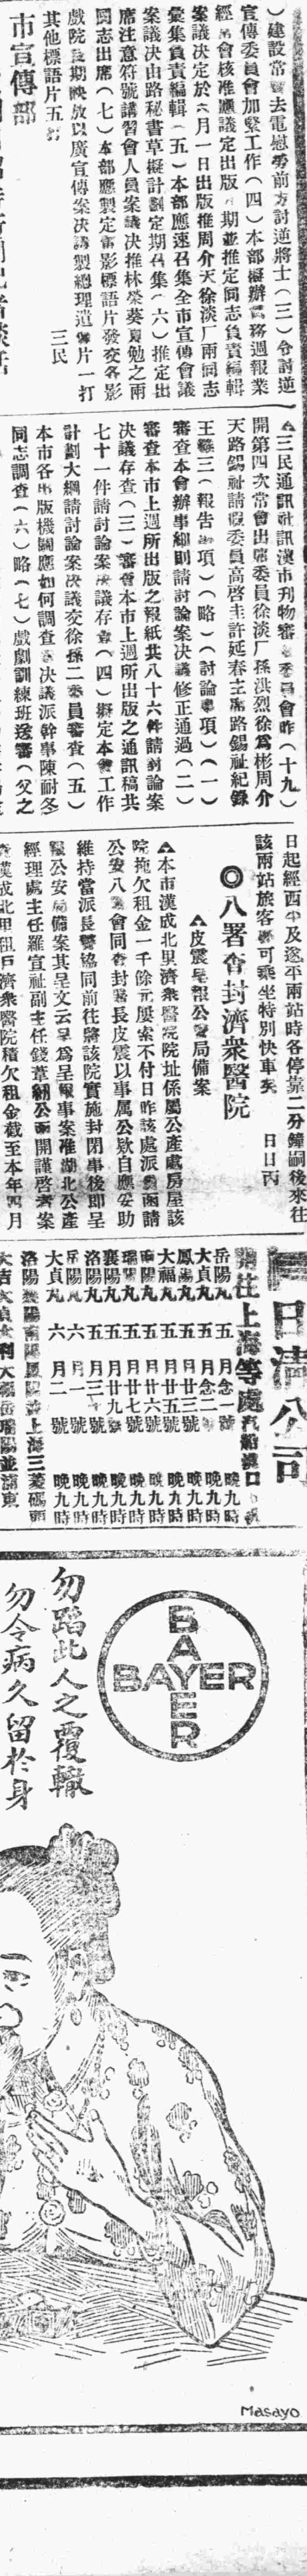 ）建設常會去電慰勞前方討逆將士（三）令討逆
宣傳委員會加緊工作（四）本部擬辦黨務週報業
經常會核准應議定出版日期並推定同志負責編輯
案議決定於六月一日出版推周介天徐淡厂兩同志
彙集負責編輯（五）本部應速召集全市宣傳會議
案議決由路秘書草擬計劃定期召集（六）推定出
席注意符號講習會人員案議決推林榮葵夏勉之兩
同志出席（七）本部應製定電影標語片發交各影
戲院長期映放以廣宣傳案決議製總理遺像片一打
其他標語片五打
三民
市宣傳部
▲三民通訊社訊漢市刊物審查委員會昨（十九）
開第四次常會出席委員徐淡厂孫洪烈徐為彬周介
天路錫祉請假委員高啓圭許延春主席路錫祉紀錄
王驂三（報告事項）（略）（討論事項）（一）
審查本會辦事細則請討論案決議修正通過（二）
審查本市上週所出版之報紙共八十六件請討論案
決議存查（三）審查本市上週所出版之通訊稿共
七十一件請討論案決議存查（四）擬定本會工作
計劃大綱請討論案決議交徐孫二委員審查（五）
本市各出版機關應如何調查案決議派幹事陳耐冬
同志調查（六）略（七）戲劇訓練班送審（父之
日起經西平及遂平兩站時各停靠二分鐘嗣後來往
該兩站旅客均可乘坐特別快車矣　日日丙
◎八署會封濟衆醫院
▲皮震呈報公安局備案
▲本市漢成北里濟衆醫院院址係屬公產處房屋該
院拖欠租金一千餘元屢索不付日昨該處派員函請
公安八署會同查封署長皮震以事屬公欵自應妥助
維持當派長警協同前往將該院實施封閉事後即呈
報公安局備案其呈文云呈為呈報事案准湖北公產
經理處主任羅宣祉副主任錢葦翻公函開謹啓者案
查漢成北里租戶濟衆醫院積欠租金截至本年四月
日清公司
開往上海等處
岳陽丸　五月念一號　晚九時
大貞丸　五月念二號　晚九時
鳳陽丸　五月廿三號　晚九時
大福丸　五月廿五號　晚九時
南陽丸　五月廿六號　晚九時
瑞陽丸　五月廿七號　晚九時
襄陽丸　五月廿九號　晚九時
洛陽丸　五月三十號　晚九時
岳陽丸　六月一號　晚九時
大貞丸　六月二號　晚九時
洛陽襄陽南陽鳳陽靠上海三菱碼頭
BAYER
BAYER
勿蹈此人之覆轍
勿令病久留於身
Masayo